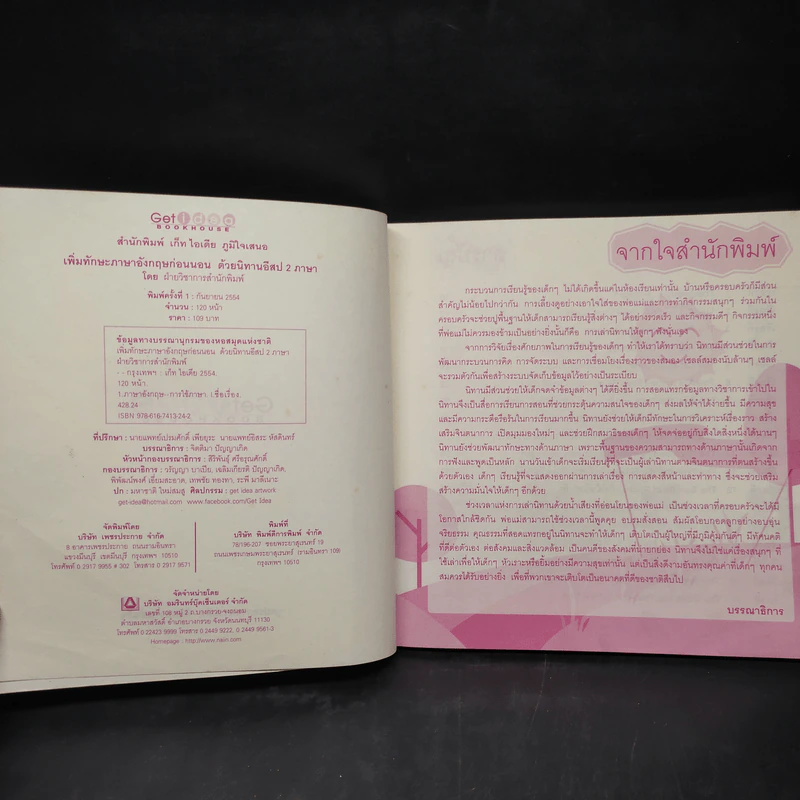 Get idea
BOOKHOUSE
สำนักพิมพ์ เก็ท ไอเดีย ภูมิใจเสนอ
เพิ่มทักษะภาษาอังกฤษก่อนนอน ด้วยนิทานอีสป 2 ภาษา
โดย ฝ่ายวิชาการสำนักพิมพ์
พิมพ์ครั้งที่ 1 : กันยายน 2554
จำนวน : 120 หน้า
ราคา : 109 บาท
ข้อมูลทางบรรณานุกรมของหอสมุดแห่งชาติ
เพิ่มทักษะภาษาอังกฤษก่อนนอน ด้วยนิทานอีสป 2 ภาษา
ฝ่ายวิชาการสำนักพิมพ์
- - กรุงเทพฯ : เก็ท ไอเดีย 2554.
120 หน้า.
1.ภาษาอังกฤษ--การใช้ภาษา. I.ชื่อเรื่อง.
428.24
ISBN 978-616-7413-24-2
ที่ปรึกษา : นายแพทย์เปรมศักดิ์ เพียยุระ นายแพทย์อิสระ หัสดินทร์
บรรณาธิการ : จิตติมา ปัญญาเกิด
หัวหน้ากองบรรณาธิการ : สิริพันธุ์ ศรีอรุณศักดิ์
กองบรรณาธิการ : วรัญญา บาเปีย, เฉลิมเกียรติ ปัญญาเกิด,
พิพัฒน์พงศ์ เอี่ยมสะอาด, เทพชัย ทองทา, ระพี มาลีเนาะ
ปก : มหาชาติ ใหม่สมสู ศิลปกรรม : get idea artwork
get-idea@hotmail.com www.facebook.com/Get Idea
จัดพิมพ์โดย
บริษัท เพชรประกาย จำกัด
8 อาคารเพชรประกาย ถนนรามอินทรา
แขวงมีนบุรี เขตมีนบุรี กรุงเทพฯ 10510
โทรศัพท์ 0 2917 9955 # 302 โทรสาร 0 2917 9571
พิมพ์ที่
บริษัท พิมพ์ดีการพิมพ์ จำกัด
78/196-207 ซอยพระยาสุเรนทร์ 19
ถนนเพชรเกษมพระยาสุเรนทร์ (รามอินทรา 109)
กรุงเทพฯ 10510
จัดจำหน่ายโดย
บริษัท อมรินทร์บุ๊คเซ็นเตอร์ จำกัด
เลขที่ 108 หมู่ 2 ถ.บางกรวย-จงถนอม
ตำบลมหาสวัสดิ์ อำเภอบางกรวย จังหวัดนนทบุรี 11130
โทรศัพท์ 0 22423 9999 โทรสาร 0 2449 9222, 0 2449 9561-2
Homepage : http://www.naiin.com
จากใจสำนักพิมพ์
กระบวนการเรียนรู้ของเด็กๆ ไม่ได้เกิดขึ้นแค่ในห้องเรียนเท่านั้น บ้านหรือครอบครัวก็มีส่วน
สำคัญไม่น้อยไปกว่ากัน การเลี้ยงดูอย่างเอาใจใส่ของพ่อแม่และการทำกิจกรรมสนุกๆ ร่วมกันใน
ครอบครัวจะช่วยปูพื้นฐานให้เด็กสามารถเรียนรู้สิ่งต่างๆ ได้อย่างรวดเร็ว และกิจกรรมดีๆ กิจกรรมหนึ่ง
ที่พ่อแม่ไม่ควรมองข้ามเป็นอย่างยิ่งนั้นก็คือ การเล่านิทานให้ลูกๆ ฟังนั่นเอง
จากการวิจัยเรื่องศักยภาพในการเรียนรู้ของเด็กๆ ทำให้เราได้ทราบว่า นิทานมีส่วนช่วยในการ
พัฒนากระบวนการคิด การจัดระบบ และการเชื่อมโยงเรื่องราวของสมอง เซลล์สมองนับล้านๆ เซลล์
จะรวมตัวกันเพื่อสร้างระบบจัดเก็บข้อมูลไว้อย่างเป็นระเบียบ
นิทานมีส่วนช่วยให้เด็กจดจำข้อมูลต่างๆ ได้ดียิ่งขึ้น การสอดแทรกข้อมูลทางวิชาการเข้าไปใน
นิทานจึงเป็นสื่อการเรียนการสอนที่ช่วยกระตุ้นความสนใจของเด็กๆ ส่งผลให้จำได้ง่ายขึ้น มีความสุข
และมีความกระตือรือร้นในการเรียนมากขึ้น นิทานยังช่วยให้เด็กมีทักษะในการวิเคราะห์เรื่องราว สร้าง
เสริมจินตนาการ เปิดมุมมองใหม่ๆ และช่วยฝึกสมาธิของเด็กๆ ให้จดจ่ออยู่กับสิ่งใดสิ่งหนึ่งได้นานๆ
นิทานยังช่วยพัฒนาทักษะทางด้านภาษา เพราะพื้นฐานของความสามารถทางด้านภาษานั้นเกิดจาก
การฟังและพูดเป็นหลัก นานวันเข้าเด็กจะเริ่มเรียนรู้ที่จะเป็นผู้เล่านิทานตามจินตนาการที่ตนสร้างขึ้น
ด้วยตัวเอง เด็กๆ เรียนรู้ที่จะแสดงออกผ่านการเล่าเรื่อง การแสดงสีหน้าและท่าทาง ซึ่งจะช่วยเสริม
สร้างความมั่นใจให้เด็กๆ อีกด้วย
ช่วงเวลาแห่งการเล่านิทานด้วยน้ำเสียงที่อ่อนโยนของพ่อแม่ เป็นช่วงเวลาที่ครอบครัวจะได้มี
โอกาสใกล้ชิดกัน พ่อแม่สามารถใช้ช่วงเวลานี้พูดคุย อบรมสั่งสอน สัมผัสโอบกอดลูกอย่างอบอุ่น
จริยธรรม คุณธรรมที่สอดแทรกอยู่ในนิทานจะทำให้เด็กๆ เติบโตเป็นผู้ใหญ่ที่มีภูมิคุ้มกันดีๆ มีทัศนคติ
ที่ดีต่อตัวเอง ต่อสังคมและสิ่งแวดล้อม เป็นคนดีของสังคมที่น่ายกย่อง นิทานจึงไม่ใช่แค่เรื่องสนุกๆ ที่
ใช้เล่าเพื่อให้เด็กๆ หัวเราะหรือยิ้มอย่างมีความสุขเท่านั้น แต่เป็นสิ่งดีงามอันทรงคุณค่าที่เด็กๆ ทุกคน
สมควรได้รับอย่างยิ่ง เพื่อที่พวกเขาจะเติบโตเป็นอนาคตที่ดีของชาติสืบไป
บรรณาธิการ